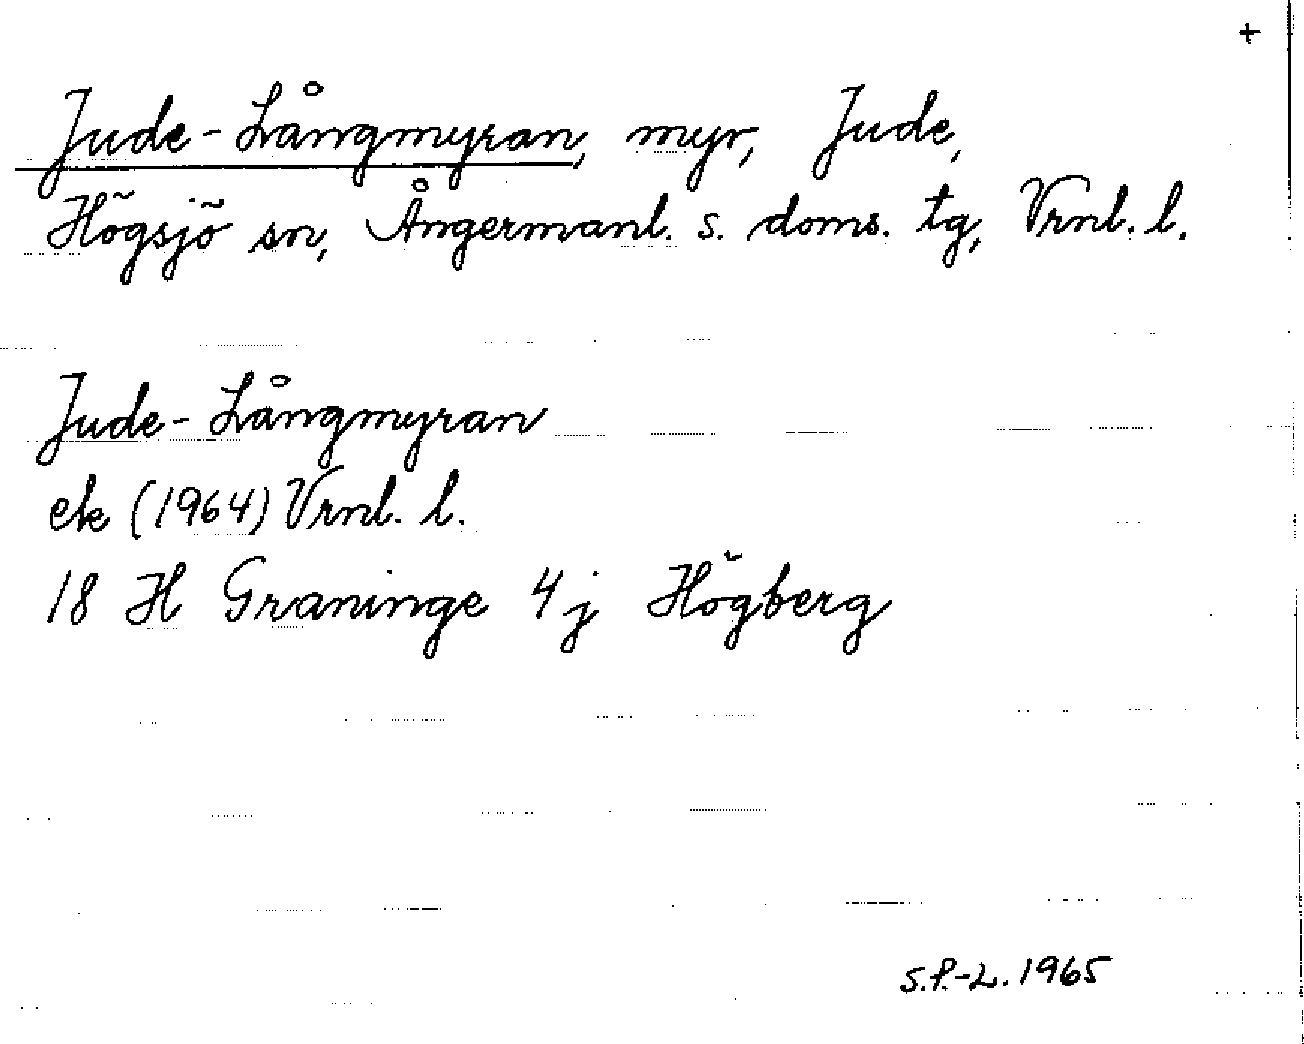 +
Jude-Långmyran, myr, Jude,
Högsjö sn, Ångermanl. s. doms. tg, Vrnl. l.
Jude-Långmyran
ek (1964) Vrnl. l.
18 H Graninge 4j Högberg
S.P.-L. 1965